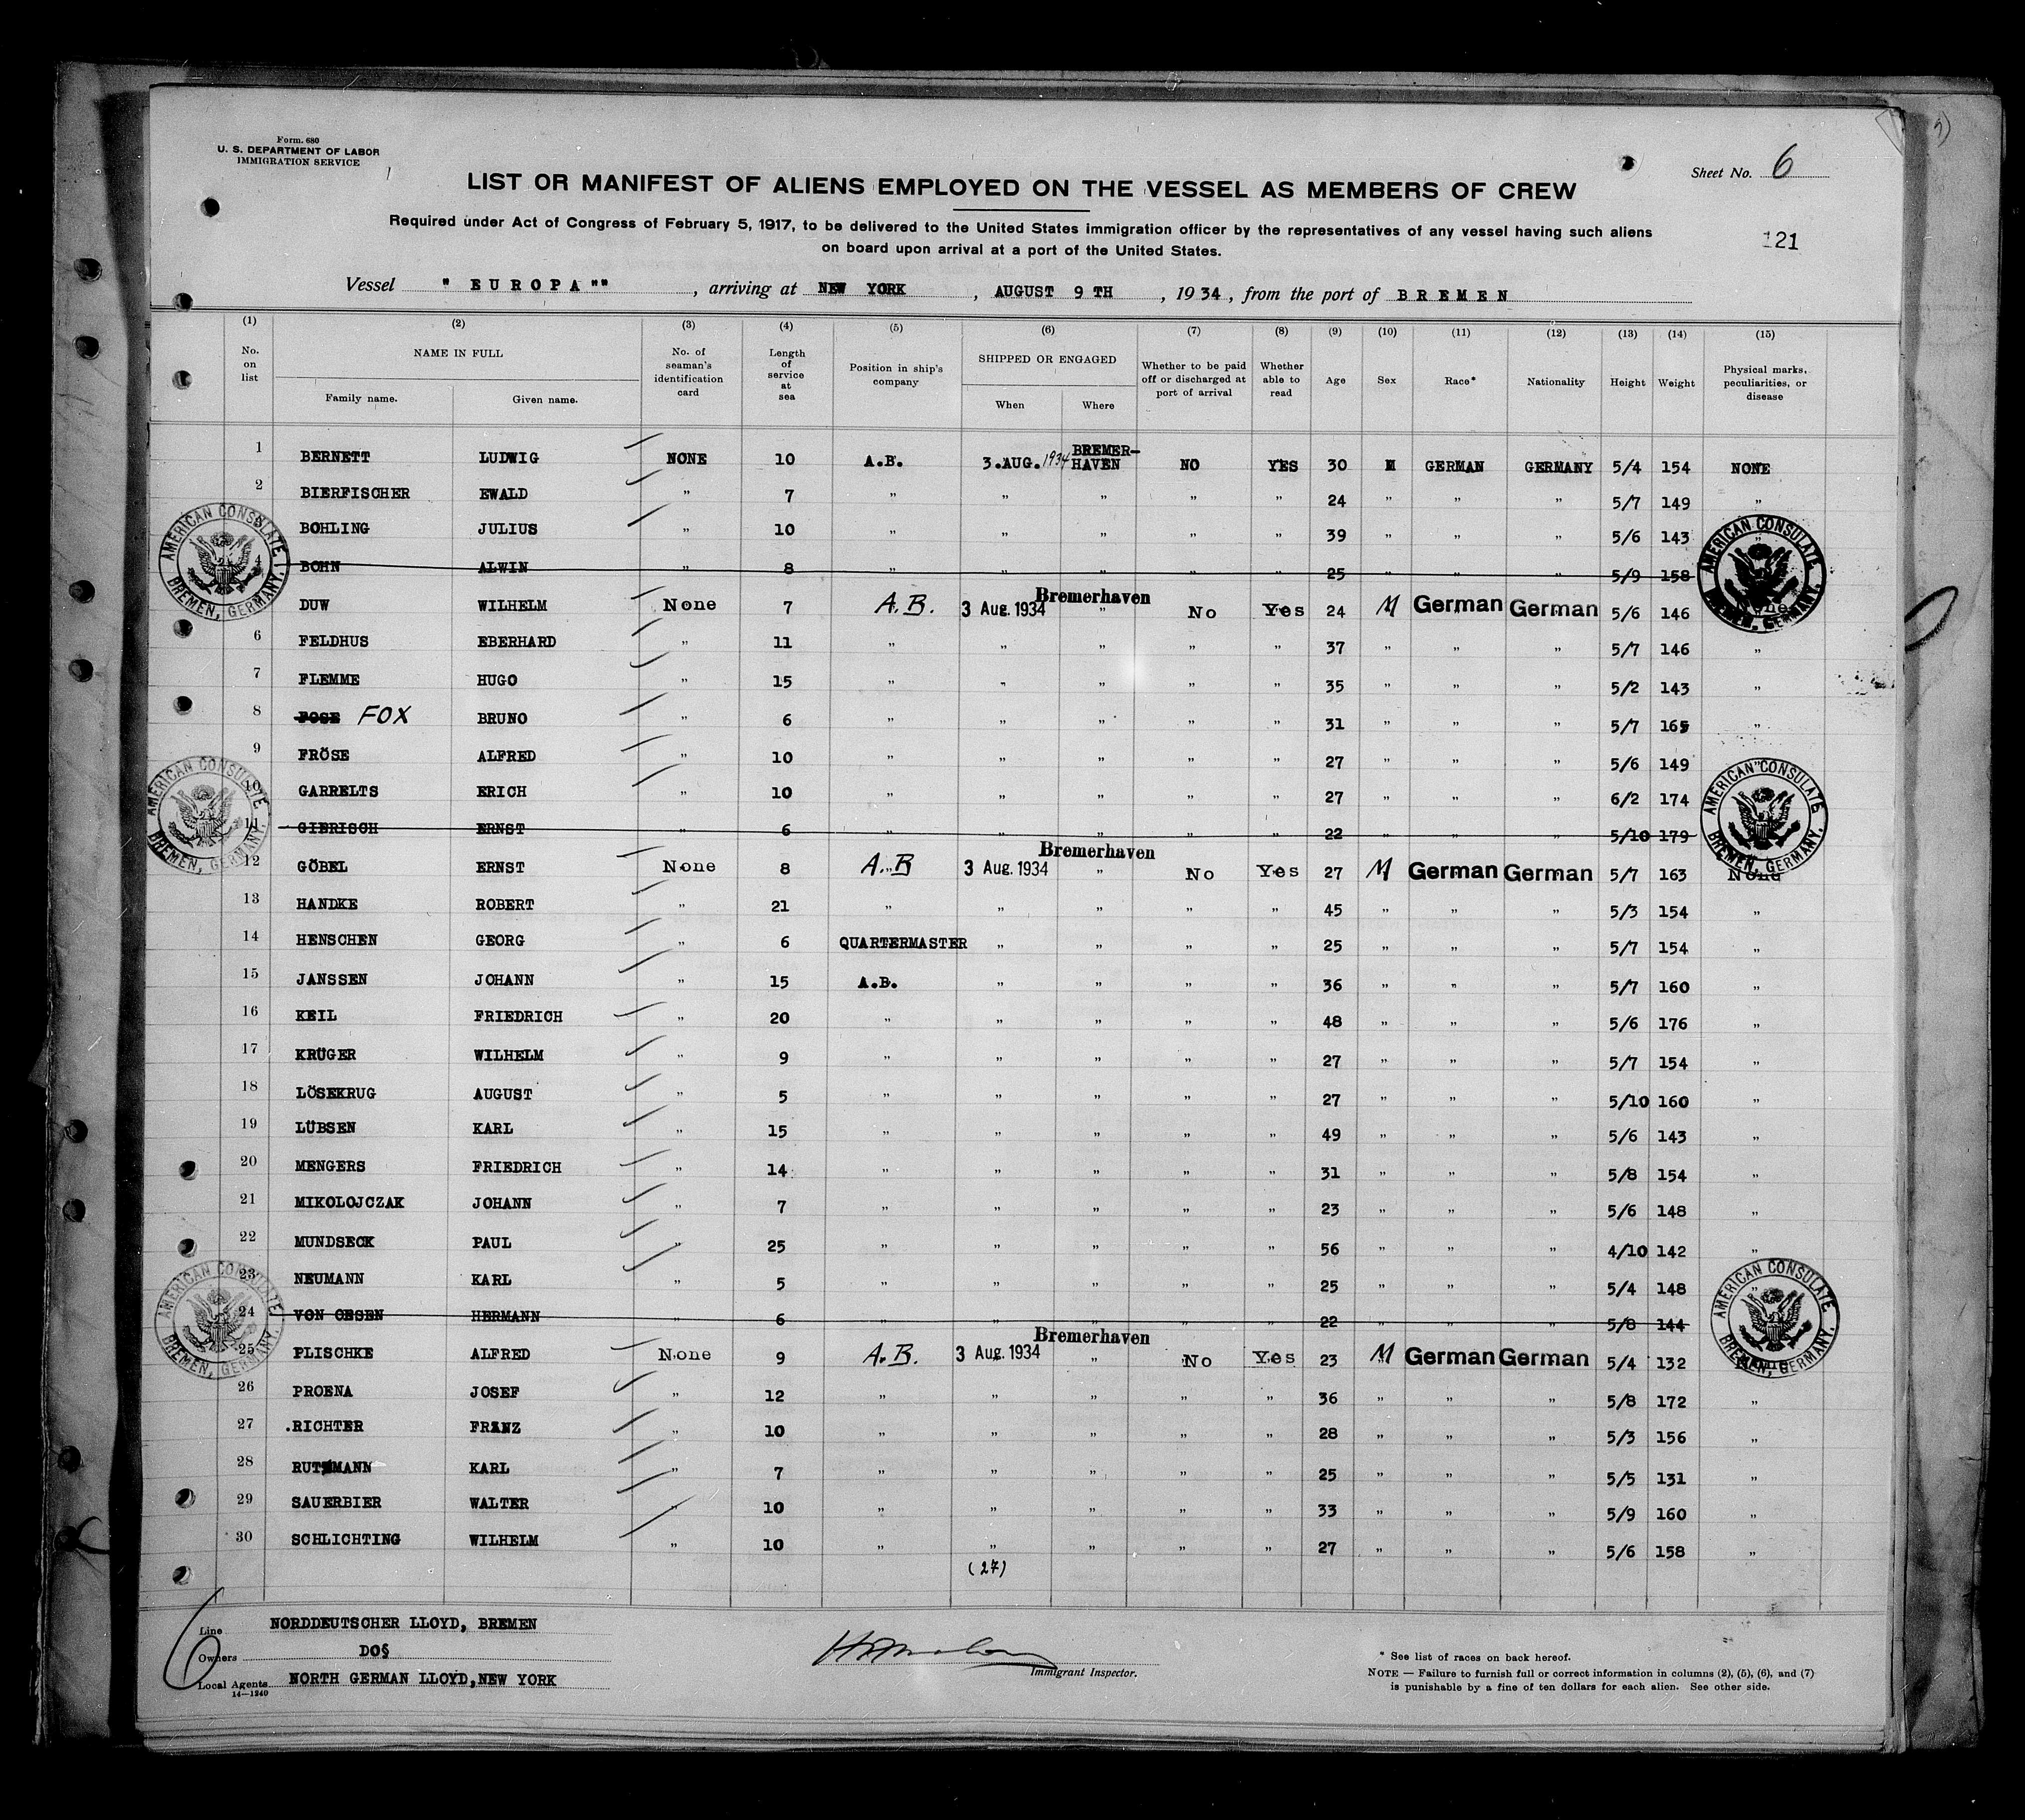 Form. 680
U. S. DEPARTMENT OF LABOR
IMMIGRATION SERVICE
Sheet No. 6
LIST OR MANIFEST OF ALIENS EMPLOYED ON THE VESSEL AS MEMBERS OF CREW
Required under Act of Congress of February 5, 1917, to be delivered to the United States immigration officer by the representatives of any vessel having such aliens
on board upon arrival at a port of the United States.
121
Vessel " EUROPA"", arriving at NEW YORK, AUGUST 9 TH, 1934, from the port of BREMEN
(1) (2) (3) (4) (5) (6) (7) (8) (9) (10) (11) (12) (13) (14) (15)
No. on list NAME IN FULL Family name. Given name. No. of seaman's identification card Length of service at sea Position in ship's company SHIPPED OR ENGAGED When Where Whether to be paid off or discharged at port of arrival Whether able to read Age Sex Race* Nationality Height Weight Physical marks, peculiarities, or disease
1 BERNETT LUDWIG NONE 10 A.B. 3.AUG.1934 BREMER-HAVEN NO YES 30 M GERMAN GERMANY 5/4 154 NONE
2 BIERFISCHER EWALD " 7 " " " " " 24 " " " 5/7 149 "
3 BOHLING JULIUS " 10 " " " " " 39 " " " 5/6 143 "
4 BOHN ALWIN " 8 " " " " " 25 " " " 5/9 158
DUW WILHELM None 7 A.B. 3 Aug. 1934 Bremerhaven " No Yes 24 M German German 5/6 146 None
6 FELDHUS EBERHARD " 11 " " " " " 37 " " " 5/7 146 "
7 FLEMME HUGO " 15 " " " " " 35 " " " 5/2 143 "
8 FOSE FOX BRUNO " 6 " " " " " 31 " " " 5/7 165 "
9 FRÖSE ALFRED " 10 " " " " " 27 " " " 5/6 149 "
10 GARRELTS ERICH " 10 " " " " " 27 " " " 6/2 174
11 GIERISCH ERNST " 6 " " " " " 22 " " " 5/10 179
12 GÖBEL ERNST None 8 A.B 3 Aug. 1934 Bremerhaven " No Yes 27 M German German 5/7 163 None
13 HANDKE ROBERT " 21 " " " " " 45 " " " 5/3 154 "
14 HENSCHEN GEORG " 6 QUARTERMASTER " " " " 25 " " " 5/7 154 "
15 JANSSEN JOHANN " 15 A.B. " " " " 36 " " " 5/7 160 "
16 KEIL FRIEDRICH " 20 " " " " " 48 " " " 5/6 176 "
17 KRÜGER WILHELM " 9 " " " " " 27 " " " 5/7 154 "
18 LÖSEKRUG AUGUST " 5 " " " " " 27 " " " 5/10 160 "
19 LÜBSEN KARL " 15 " " " " " 49 " " " 5/6 143 "
20 MENGERS FRIEDRICH " 14 " " " " " 31 " " " 5/8 154 "
21 MIKOLOJCZAK JOHANN " 7 " " " " " 23 " " " 5/6 148 "
22 MUNDSECK PAUL " 25 " " " " " 56 " " " 4/10 142 "
23 NEUMANN KARL " 5 " " " " " 25 " " " 5/4 148 "
24 VON OESEN HERMANN " 6 " " " " " 22 " " " 5/8 144
25 PLISCHKE ALFRED None 9 A.B. 3 Aug. 1934 Bremerhaven " No Yes 23 M German German 5/4 132
26 PROENA JOSEF " 12 " " " " " 36 " " " 5/8 172 "
27 .RICHTER FRANZ " 10 " " " " " 28 " " " 5/3 156 "
28 RUTZMANN KARL " 7 " " " " " 25 " " " 5/5 131 "
29 SAUERBIER WALTER " 10 " " " " " 33 " " " 5/9 160 "
30 SCHLICHTING WILHELM " 10 " " " " " 27 " " " 5/6 158 "
(27)
AMERICAN CONSULATE BREMEN, GERMANY.
AMERICAN CONSULATE BREMEN, GERMANY.
AMERICAN CONSULATE BREMEN, GERMANY.
AMERICAN CONSULATE BREMEN, GERMANY.
AMERICAN CONSULATE BREMEN, GERMANY.
AMERICAN CONSULATE BREMEN, GERMANY.
6
Line NORDDEUTSCHER LLOYD, BREMEN
Owners DO§
Local Agents NORTH GERMAN LLOYD,NEW YORK
14—1240
Immigrant Inspector.
* See list of races on back hereof.
NOTE — Failure to furnish full or correct information in columns (2), (5), (6), and (7)
is punishable by a fine of ten dollars for each alien. See other side.